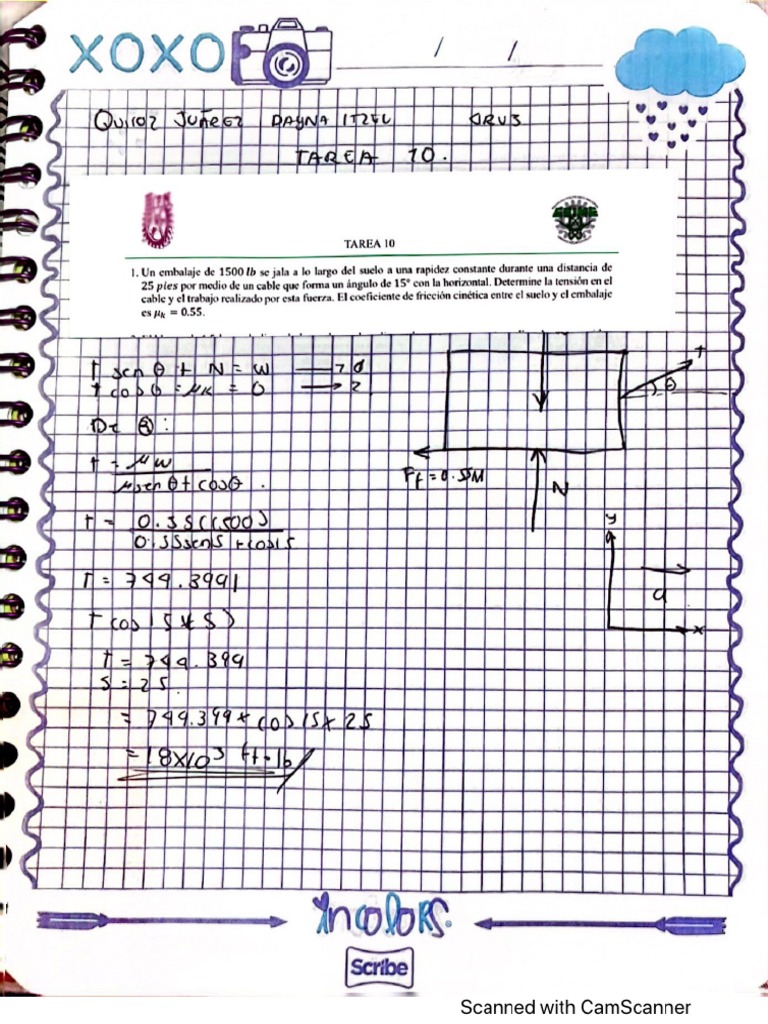 XOXO
/ /
QUIROZ JUÑREZ DAYNA ITZEL 2RV3
TAREA 10.
TAREA 10
1. Un embalaje de 1500 lb se jala a lo largo del suelo a una rapidez constante durante una distancia de
25 pies por medio de un cable que forma un ángulo de 15° con la horizontal. Determine la tensión en el
cable y el trabajo realizado por esta fuerza. El coeficiente de fricción cinética entre el suelo y el embalaje
es μk = 0.55.
T sen θ + N = W
T cos θ = μk = 0 → 2
De ②:
T = μw
μsen θ + cosθ.
T = 0.55(1500)
0.55sen15 + cos15
T = 799.3991
T cos 15 * S)
T = 799.399
S = 25
= 799.399 * cos 15 x 25
= 18x10³ ft-lb
T
θ
Ff = 0.55N
N
y
a
x
incolors.
Scribe
Scanned with CamScanner